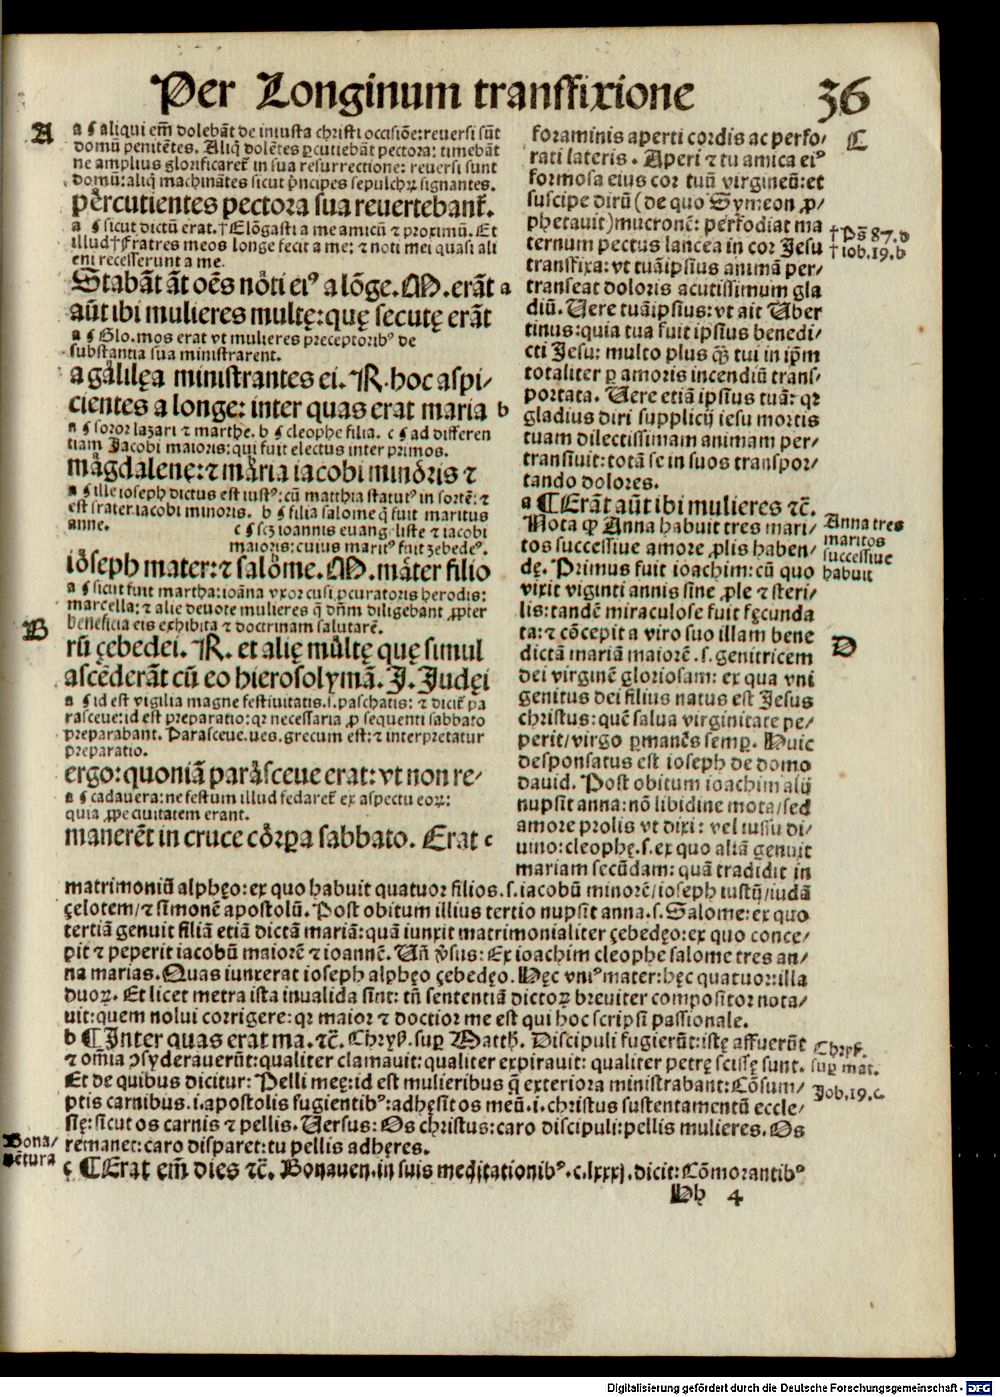 Per Longinum transfixione 36
A
a ¶ aliqui em̄ dolebāt de iniusta christi occisiōe: reuersi sūt
domū penitētes. Aliq̄ dolētes ꝑcutiebāt pectora: timebāt
ne amplius glorificaret᷑ in sua resurrectione: reuersi sunt
domū: aliq̄ machinātes sicut p̄ncipes sepulchꝝ signantes.
percutientes pectora sua reuertebant᷑.
a ¶ sicut dictū erat. † Elōgasti a me amicū ⁊ proximū. Et
illud † Fratres meos longe fecit a me: ⁊ noti mei quasi ali
eni recesserunt a me.
Stabāt āt oēs nōti eiꝰ a lōge. M. erāt a
aūt ibi mulieres multę: quę secutę erāt
a ¶ Glo. mos erat vt mulieres preceptoribꝰ de
substantia sua ministrarent.
a galilęa ministrantes ei. R. hoc aspi/
cientes a longe: inter quas erat maria b
a ¶ soror lazari ⁊ marthe. b ¶ cleophe filia. c ¶ ad differen
tiam Jacobi maioris: qui fuit electus inter primos.
magdalenę: ⁊ maria iacobi minoris ⁊
a ¶ ille ioseph dictus est iustꝰ: cū matthia statutꝰ in sortē: ⁊
est frater iacobi minoris. b ¶ filia salome q̄ fuit maritus
anne. c ¶ scꝫ ioannis euangelistę ⁊ iacobi
maioris: cuius maritꝰ fuit zebedeꝰ.
ioseph mater: ⁊ salome. M. mater filio
a ¶ sicut fuit martha: ioāna vxor cusi ꝓcuratoris herodis:
marcella: ⁊ alie deuote mulieres q̄ dn̄m diligebant ꝓpter
beneficia eis exhibita ⁊ doctrinam salutarē.
B
rū çebedei. R. et alię multę quę simul
ascēderāt cū eo hierosolymā. J. Judęi
a ¶ id est vigilia magne festiuitatis .s. paschatis: ⁊ dicit᷑ pa
rasceue: id est preparatio: qꝛ necessaria ꝓ sequenti sabbato
preparabant. Parasceue. ues. grecum est: ⁊ interpretatur
preparatio.
ergo: quoniā parasceue erat: vt non re/
a ¶ cadauera: ne festum illud fedaret᷑ ex aspectu eoꝝ:
quia ꝓpe ciuitatem erant.
manerēt in cruce corꝑa sabbato. Erat c
foraminis aperti cordis ac perfo/
rati lateris. Aperi ⁊ tu amica eiꝰ
C
formosa eius cor tuū virgineū: et
suscipe dirū (de quo Symeon ꝓ/
phetauit) mucronē: perfodiat ma
ternum pectus lancea in cor Jesu
† Ps̄ 87. d
† iob. 19. b
transfixa: vt tuāipsius animā per/
transeat doloris acutissimum gla
diū. Uere tuāipsius: vt ait Uber
tinus: quia tua fuit ipsius benedi/
cti Jesu: multo plus q̄ꝫ tui in ip̄m
totaliter ꝑ amoris incendiū trans/
portata. Uere etiā ipsius tuā: qꝛ
gladius diri supplicij iesu mortis
tuam dilectissimam animam per/
transiuit: totā se in suos transpor/
tando dolores.
a ¶ Erāt aūt ibi mulieres ⁊c̄.
Nota ꝙ Anna habuit tres mari/
tos successiue amore ꝓlis haben/
Anna tres
maritos
successiue
habuit
dę. Primus fuit ioachim: cū quo
vixit viginti annis sine ꝓle ⁊ steri/
lis: tandē miraculose fuit fęcunda
ta: ⁊ cōcepit a viro suo illam bene
D
dictā mariā maiorē .s. genitricem
dei virginē gloriosam: ex qua vni
genitus dei filius natus est Jesus
christus: quē salua virginitate pe/
perit/ virgo ꝑmanēs semꝑ. Huic
desponsatus est ioseph de domo
dauid. Post obitum ioachim alij
nupsit anna: nō libidine mota/ sed
amore prolis vt dixi: vel iussu di/
uino: cleophę .s. ex quo aliā genuit
mariam secūdam: quā tradidit in
matrimoniū alphęo: ex quo habuit quatuor filios .s. iacobū minorē/ ioseph iustū/ iudā
çelotem/ ⁊ simonē apostolū. Post obitum illius tertio nupsit anna .s. Salome: ex quo
tertiā genuit filiā etiā dictā mariā: quā iunxit matrimonialiter çebedęo: ex quo conce/
pit ⁊ peperit iacobū maiorē ⁊ ioannē. Uñ v̓sus: Ex ioachim cleophe salome tres an/
na marias. Quas iunxerat ioseph alphęo çebedęo. Hęc vniꝰ mater: hęc quatuor: illa
duoꝝ. Et licet metra ista inualida sint: tñ sententiā dictoꝝ breuiter compositor nota/
uit: quem nolui corrigere: qꝛ maior ⁊ doctior me est qui hoc scripsi passionale.
b ¶ Inter quas erat ma. ⁊c̄. Chrys̄. suꝑ Matth̄. Discipuli fugierūt: istę affuerūt
Chrys̄.
suꝑ mat.
⁊ om̄ia ꝯsyderauerūt: qualiter clamauit: qualiter expirauit: qualiter petrę scissę sunt.
Et de quibus dicitur: Pelli meę: id est mulieribus q̄ exteriora ministrabant: Cōsum/
Job. 19. c
ptis carnibus .i. apostolis fugientibꝰ: adhęsit os meū .i. christus sustentamentū eccle/
się: sicut os carnis ⁊ pellis. Uersus: Os christus: caro discipuli: pellis mulieres. Os
remanet: caro disparet: tu pellis adheres.
Bona/
uētura
c ¶ Erat em̄ dies ⁊c̄. Bonauen. in suis meditationibꝰ. c. lxxxj. dicit: Cōmorantibꝰ
Hh 4
Digitalisierung gefördert durch die Deutsche Forschungsgemeinschaft - DFG